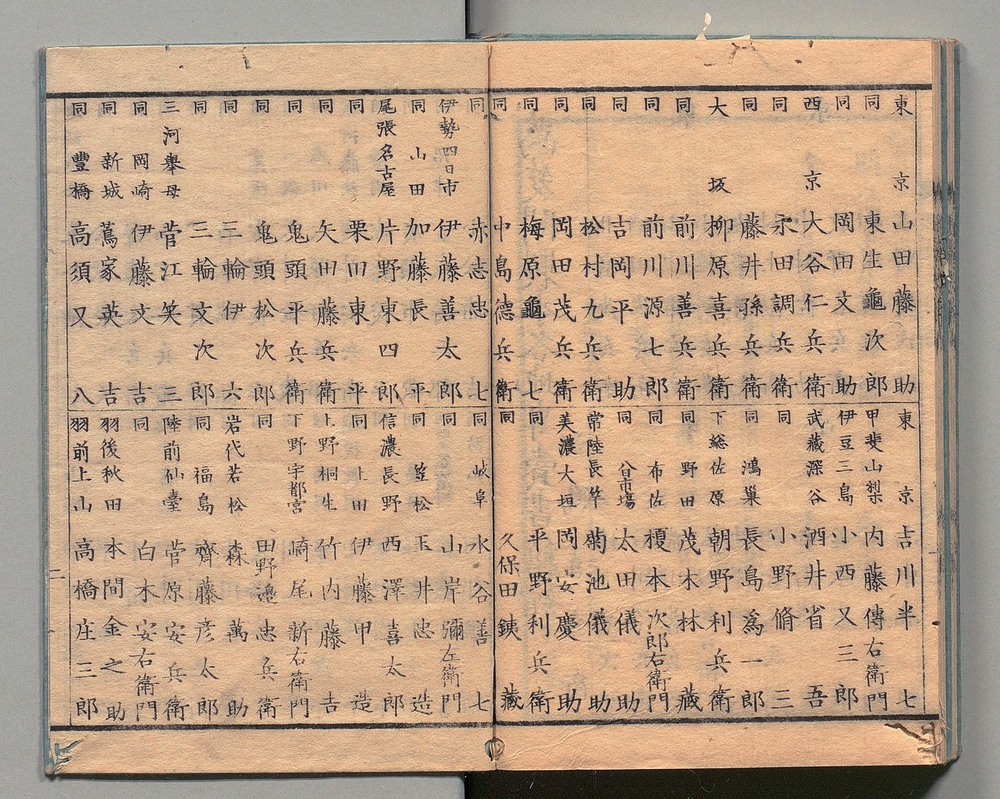 東京 山田藤助
同 東生龜次郎
同 岡田文助
西京 大谷仁兵衛
同 永田調兵衛
同 藤井孫兵衛
大坂 柳原喜兵衛
同 前川善兵衛
同 前川源七郎
同 吉岡平助
同 松村九兵衛
同 岡田茂兵衛
同 梅原龜七
同 中島德兵衛
東京 吉川半七
甲斐山梨 内藤傳右衛門
伊豆三島 小西又三郎
武藏深谷 酒井省吾
同 小野脩三
同 鴻巣 長島爲一郎
下総佐原 朝野利兵衛
同 野田 茂木林藏
同 布佐 榎本次郎右衛門
同 八日市塲 太田儀助
常陸長竿 菊池儀助
美濃大垣 岡安慶助
同 平野利兵衛
同 久保田銕藏
同 赤志忠七
伊勢四日市 伊藤善太郎
同 山田 加藤長平
尾張名古屋 片野東四郎
同 栗田東平
同 矢田藤兵衛
同 鬼頭平兵衛
同 鬼頭松次郎
同 三輪伊六
同 三輪文次郎
三河擧母 菅江笑三
同 岡崎 伊藤文吉
同 新城 蔦家英吉
同 豐橋 高須又八
同 岐阜 水谷善七
同 山岸彌左衛門
同 笠松 玉井忠造
信濃長野 西澤喜太郎
同 上田 伊藤甲造
上野桐生 竹内藤吉
下野宇都宮 崎尾新右衛門
同 田野邉忠兵衛
岩代若松 森萬助
同 福島 齊藤彦太郎
陸前仙臺 菅原安兵衛
同 白木安右衛門
羽後秋田 本間金之助
羽前上山 高橋庄三郎
二